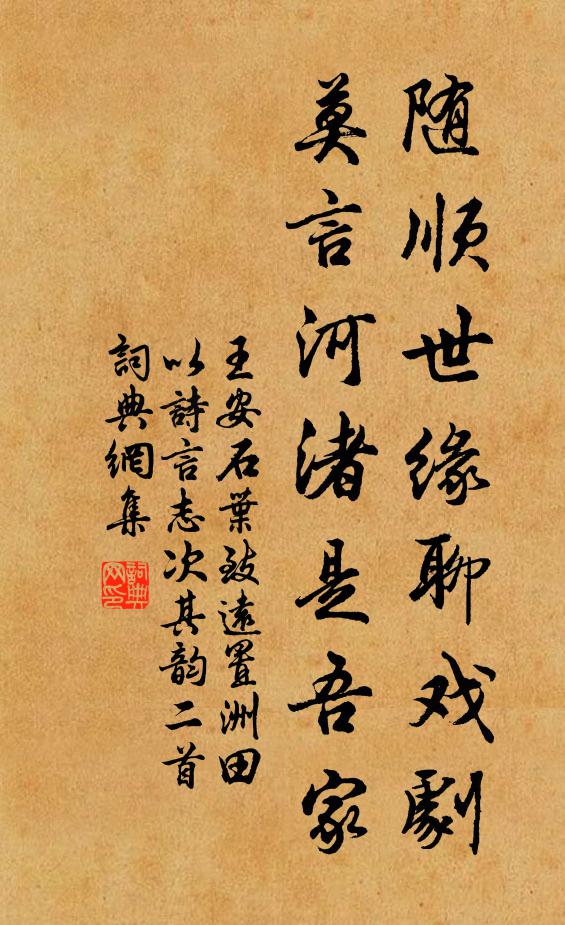 随顺世缘聊戏劇
莫言河渚是吾家
王安石葉致遠置洲田
以詩言志次其韵二首
詞典網集
詞典網印